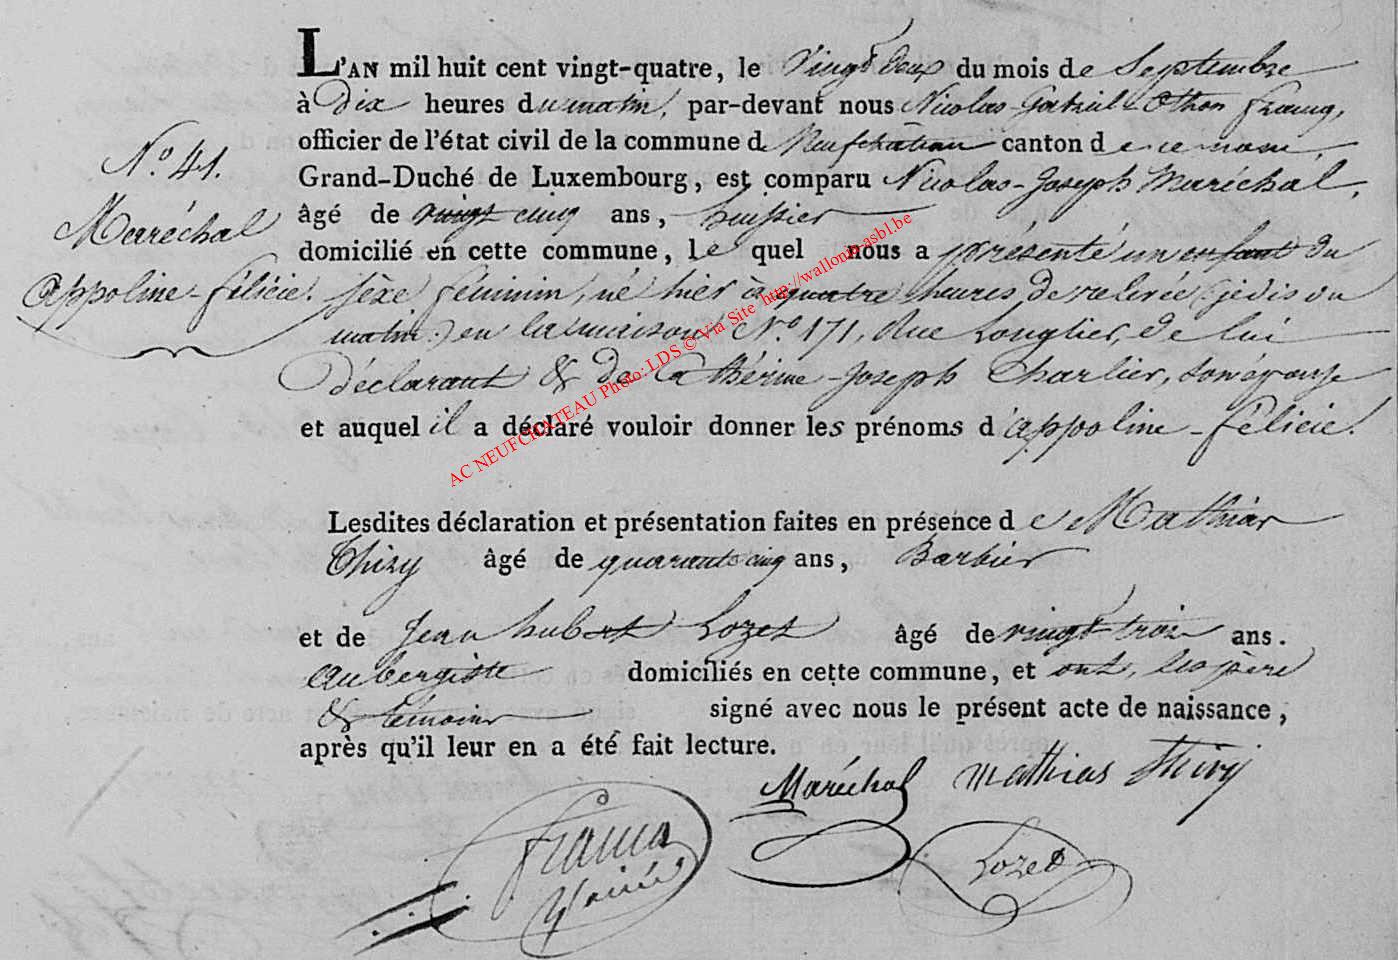 L'AN mil huit cent vingt-quatre, le Vingt deux du mois de Septembre
à Dix heures du matin, par-devant nous Nicolas-Gabriel-Othon Francq,
officier de l'état civil de la commune de Neufchâteau canton de ce nom,
Grand-Duché de Luxembourg, est comparu Nicolas-Joseph Maréchal,
âgé de vingt cinq ans, huissier
domicilié en cette commune, le quel nous a présenté un enfant du
sèxe féminin, né hier à quatre heures de relevée (je dis du
matin.) en la maison N.o 171, Rue Longlier, de lui
Déclarant & de Cathérine-Joseph Charlier, son épouse
et auquel il a déclaré vouloir donner les prénoms d'appoline-félicie.
N.o 41.
Maréchal
appoline-félicie.
Lesdites déclaration et présentation faites en présence de Mathias
Thiry âgé de quarante cinq ans, Barbier
et de Jean hubert Lozet âgé de vingt-trois ans.
aubergiste domiciliés en cette commune, et ont, les père
& témoins signé avec nous le présent acte de naissance,
après qu'il leur en a été fait lecture.
Maréchal Mathias Thiry
Francq
Lozet
AC NEUFCHATEAU Photo: LDS © Via Site http://wallonia-asbl.be